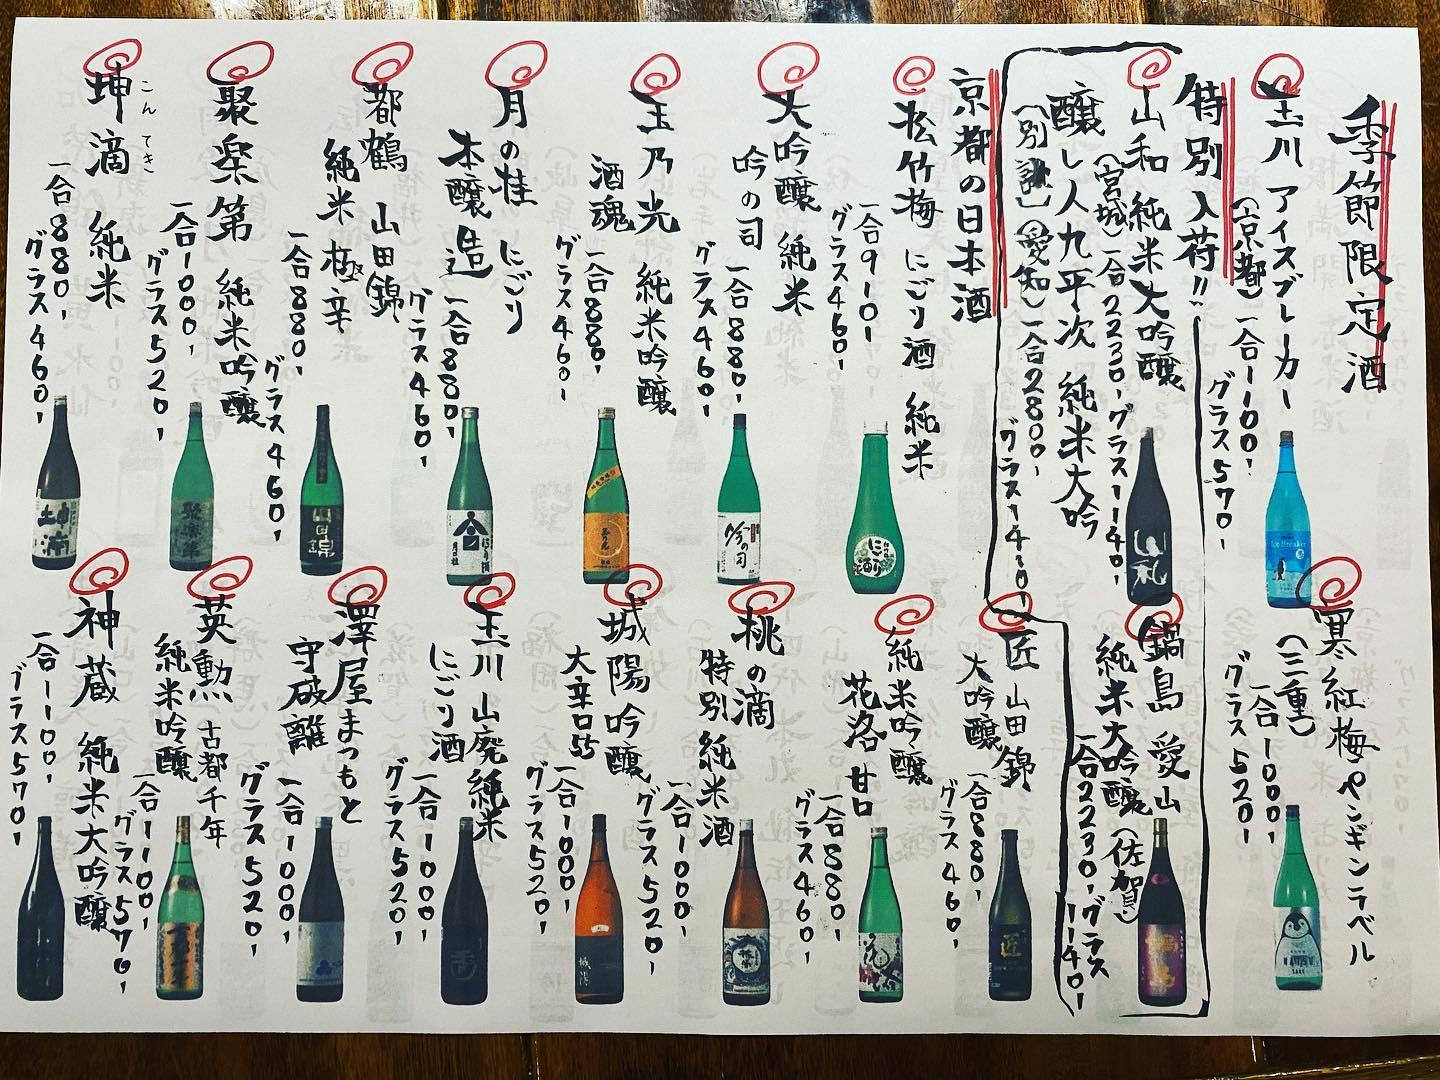 季節限定酒
玉川 アイスブレーカー
(京都) 一合1100,
グラス570,
寒紅梅ペンギンラベル
(三重) 一合1000,
グラス520,
特別入荷!!
山和 純米大吟醸
(宮城) 一合2230, グラス1140,
醸し人九平次 純米大吟
(別誂) (愛知) 一合2800,
グラス1410,
鍋島 愛山
純米大吟醸 (佐賀)
一合2230, グラス1140,
京都の日本酒
松竹梅 にごり酒 純米
一合910,
グラス460,
大吟醸 純米
吟の司
一合880,
グラス460,
玉乃光 純米吟醸
酒魂
一合880,
グラス460,
月の桂 にごり
本醸造
一合880,
グラス460,
都鶴 山田錦
純米 極辛
一合880,
グラス460,
聚楽第 純米吟醸
一合1000,
グラス520,
坤滴 純米
こんてき
一合880,
グラス460,
匠 山田錦
大吟醸
一合880,
グラス460,
純米吟醸
花洛 甘口
一合880,
グラス460,
桃の滴
特別純米酒
一合1000,
グラス520,
城陽 吟醸
大辛口55
一合1000,
グラス520,
玉川 山廃純米
にごり酒
一合1000,
グラス520,
澤屋まつもと
守破離
一合1000,
グラス520,
英勲 古都千年
純米吟醸
一合1100,
グラス570,
神蔵 純米大吟醸
一合1100,
グラス570,
坤滴
聚楽第
山田錦
にごり酒
月の桂
玉乃光
吟の司
にごり
山和
Ice Breaker
匠
城陽
鍋島
SAKE